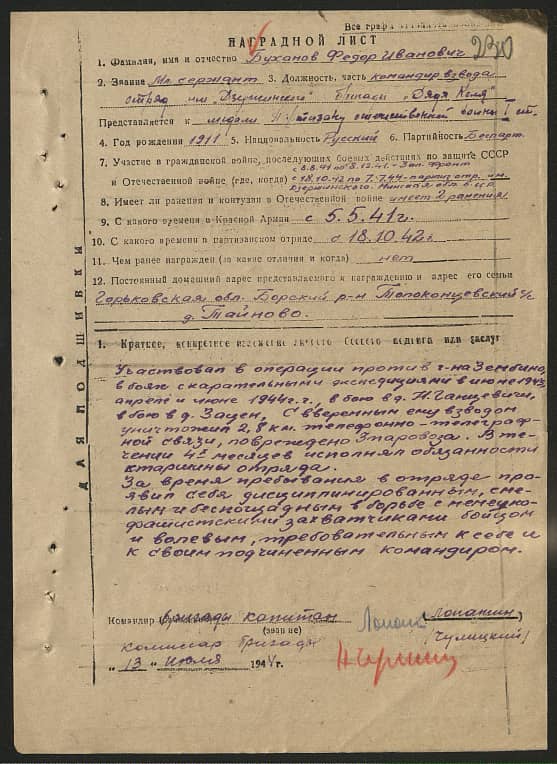 Все графы
НАГРАДНОЙ ЛИСТ
1. Фамилия, имя и отчество Буханов Федор Иванович
2. Звание Мл. сержант 3. Должность, часть командир взвода
отряд им. Дзержинского бригады "Дядя Коля"
Представляется к медали Партизану отечественной войны I ст.
4. Год рождения 1911 5. Национальность Русский 6. Партийность Беспарт.
7. Участие в гражданской войне, последующих боевых действиях по защите СССР
с 8.8.41 по 8.12.41 - Зап. Фронт
и Отечественной войне (где, когда) с 18.10.42 по 7.7.44 - партиз. отр. им.
Дзержинского. Минская обл. БССР
8. Имеет ли ранения и контузии в Отечественной войне имеет 2 ранения
9. С какого времени в Красной Армии с 5.5.41 г.
10. С какого времени в партизанском отряде с 18.10.42 г.
11. Чем ранее награжден (за какие отличия и когда) нет
12. Постоянный домашний адрес представляемого к награждению и адрес его семьи
Горьковская обл. Борский р-н Топоконцевский с/с
д. Тайново.
ДЛЯ ПОДШИВКИ
1. Краткое, конкретное изложение личного боевого подвига или заслуг
Участвовал в операции против г-на Зембино,
в боях с карательными экспедициями в июне 1943,
апреле и июне 1944 г.г., в бою в д. Н. Ганцевичи,
в бою в д. Зацен, С вверенным ему взводом
уничтожил 2,8 км. телефонно-телеграф-
ной связи, повреждено 3 паровоза. В те-
чении 4х месяцев исполнял обязанности
старшины отряда.
За время пребывания в отряде про-
явил себя дисциплинированным, сме-
лым и беспощадным в борьбе с немецко-
фашистскими захватчиками бойцом
и волевым, требовательным к себе и
к своим подчиненным командиром.
Командир бригады капитан (Лопатин)
(звание)
комиссар бригады (Чулицкий)
"13" июля 1944 г.